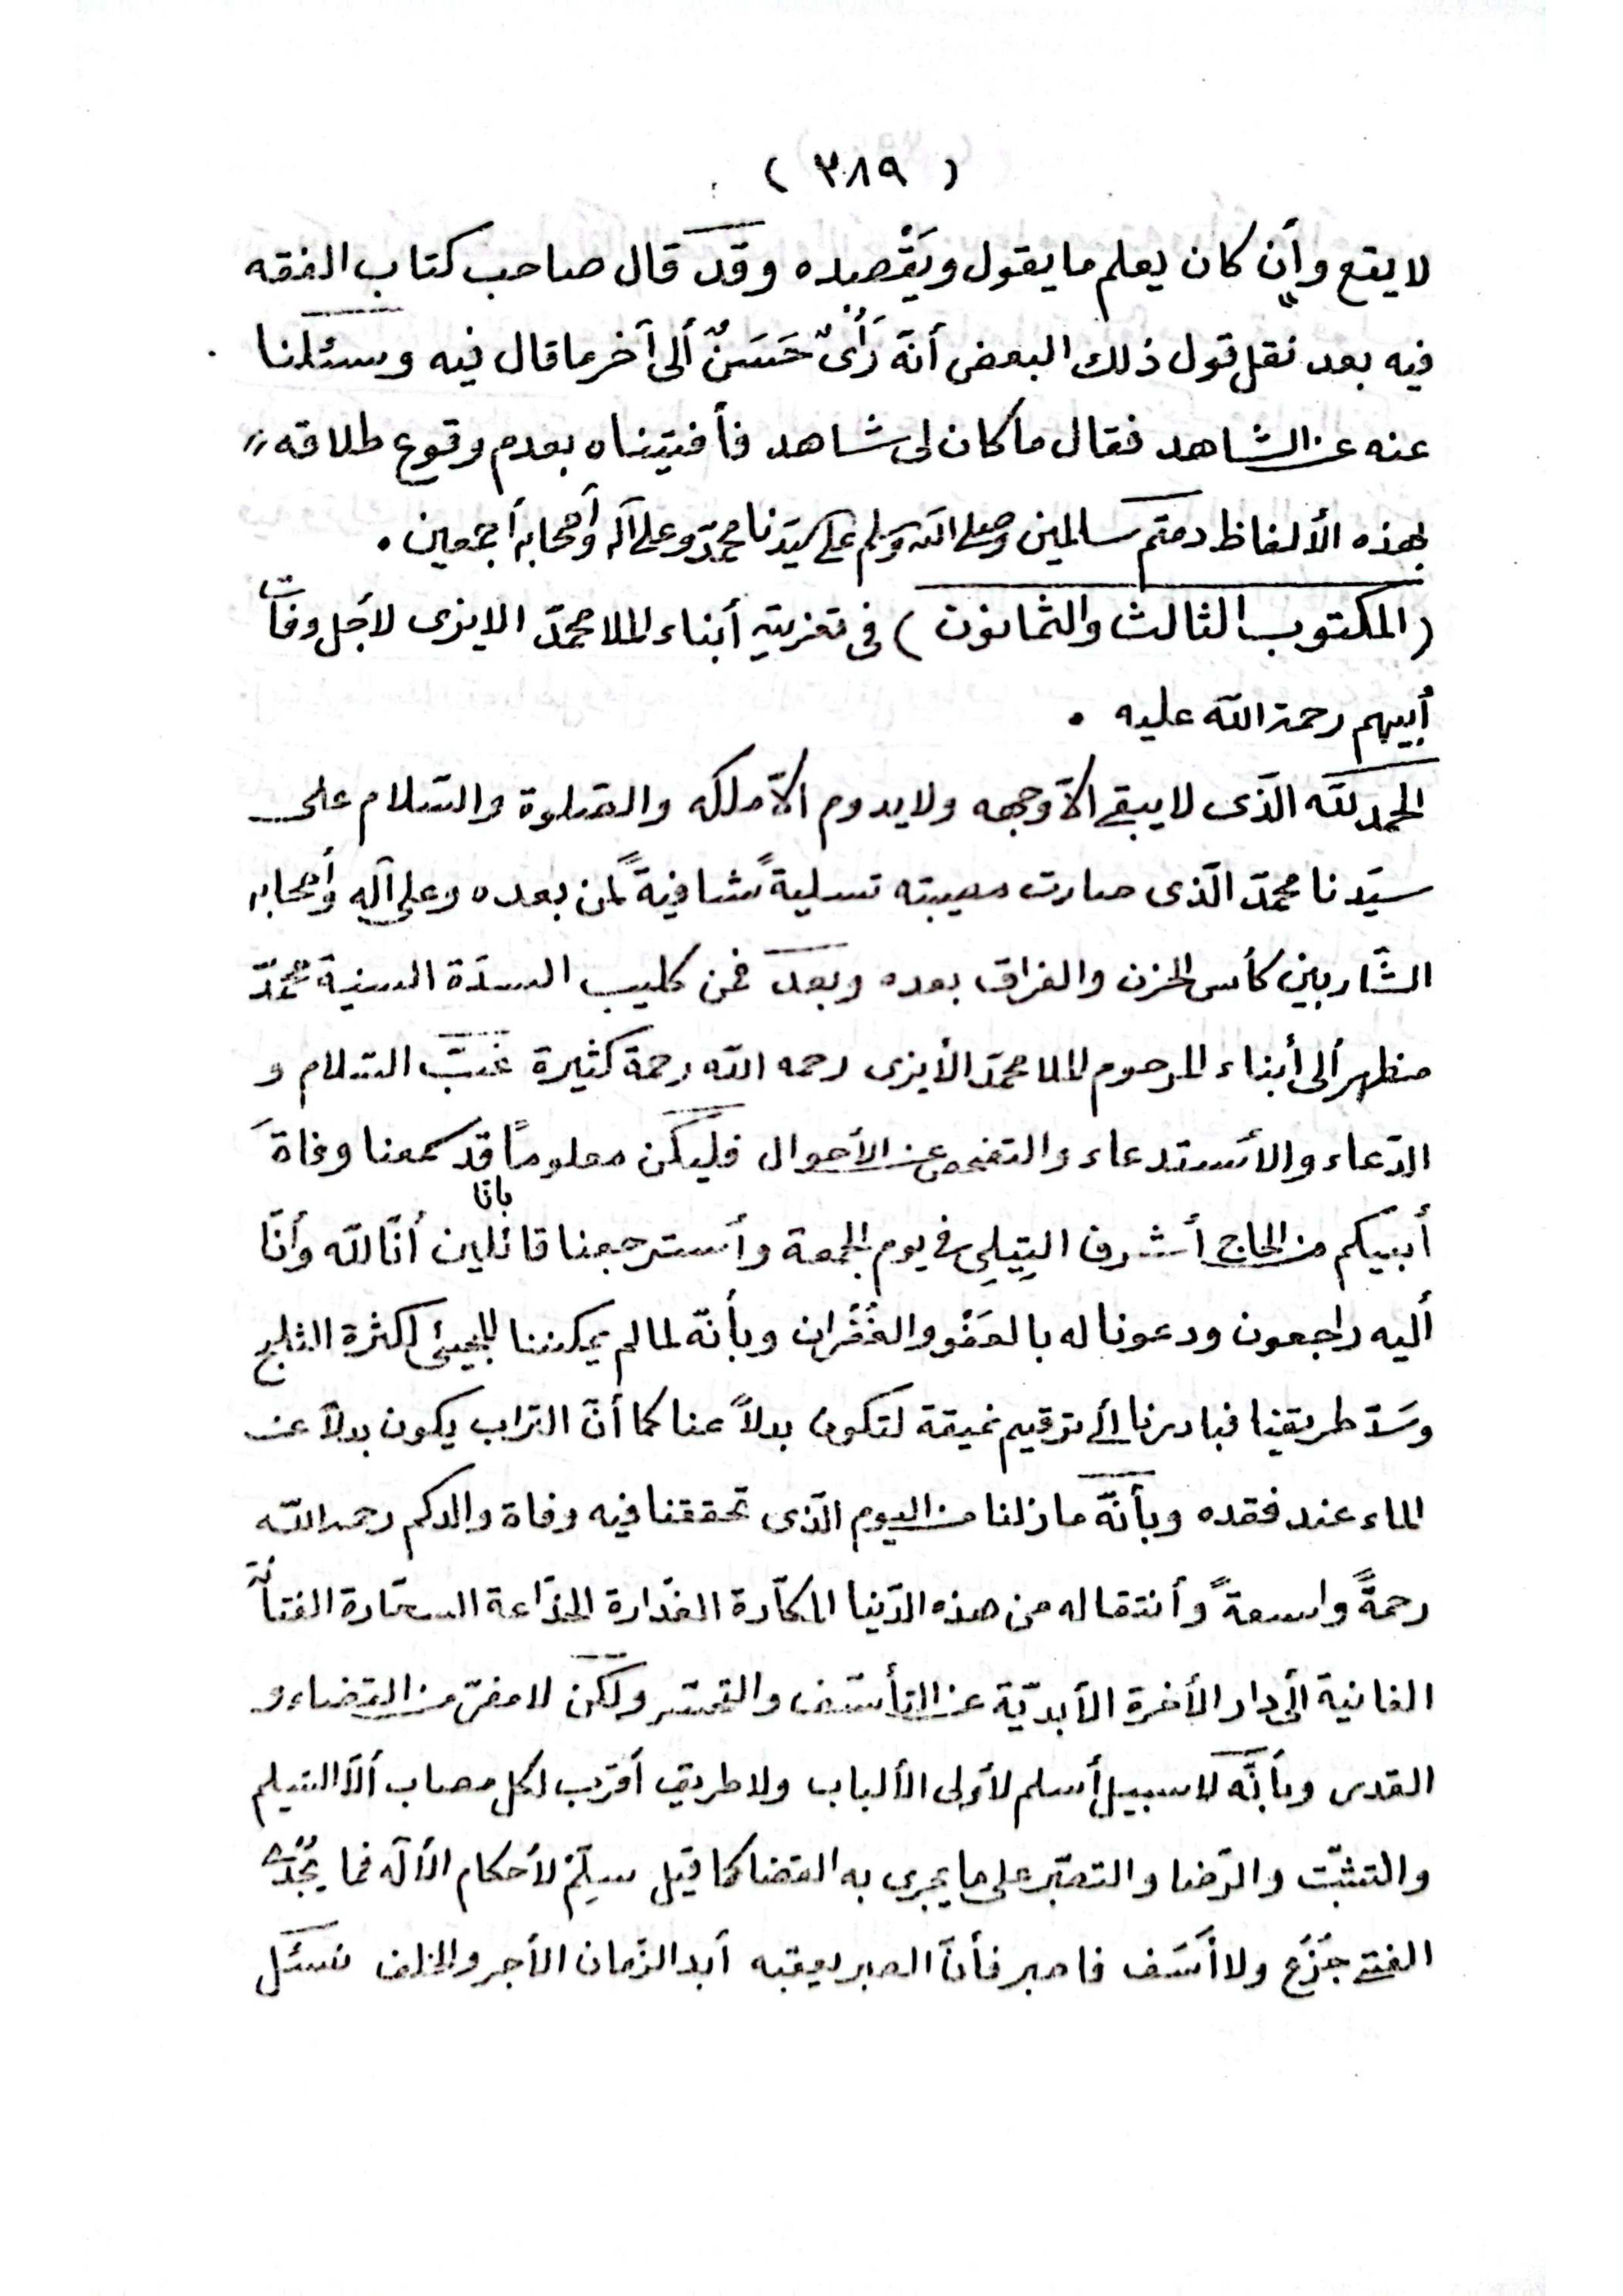 ( ٣٨٩ )
لا يقع وأن كان يعلم ما يقول ويَقْصِده وقد قال صاحب كتاب الفقه
فيه بعد نقل قول ذلك البعض أنه رَأْىٌ حَسَنٌ ألى آخر ما قال فيه وسئلنا
عنه عن الشاهد فقال ما كان لى شاهد فأفتيناه بعدم وقوع طلاقه
بهذه الألفاظ دمتم سالمين وصلى الله وسلم على سيّدنا محمّد وعلى آله وأصحابه أجمعين .
(المكتوب الثالث والثمانون) فى تعزية أبناء الملا محمّد الايزى لأجل وفات
أبيهم رحمة الله عليه .
الحمد لله الّذى لا يبقى الّا وجهه ولا يدوم الّا ملكه والصّلوة والسّلام على
سيّدنا محمّد الّذى صارت مصيبته تسليةً شافيةً لمن بعده وعلى آله وأصحابه
الشّاربين كأس الحزن والفراق بعده وبعد فمن كليب السدّة السنية محمّد
مظهر ألى أبناء المرحوم الملا محمّد الأيزى رحمه الله رحمة كثيرة غبّ السّلام و
الدّعاء والأستدعاء والتفحص عن الأحوال فليكن معلوماً قد سمعنا وفاةَ
أبيكم من الحاج أشرف التِيلِى فى يوم الجمعة وأسترجعنا قائلين بأنا أنّا لله وأنّا
أليه راجعون ودعونا له بالعَفْو والغُفْران وبأنّه لما لم يمكننا المجيئ لكثرة الثلج
وسَدّ طريقنا فبادرنا ألى ترقيم نميقة لتكون بدلاً عنا كما أنّ التراب يكون بدلاً عن
الماء عند فقده وبأنّه ما زلنا من اليوم الّذى تحققنا فيه وفاة والدكم رحمه الله
رحمةً واسعةً وأنتقاله من هذه الدّنيا المكّارة الغدّارة الخدّاعة السحّارة الفتّانة
الفانية ألى دار الأخرة الأبديّة عن التأسّف والتحسّر ولكن لا مفرّ من القضاء و
القدر وبأنّه لا سبيل أسلم لأولى الألباب ولا طريق أقرب لكل مصاب ألّا التسليم
والتثبّت والرّضا والتصبّر على ما يجرى به القضا كما قيل سلّم لأحكام الأله فما يُجْدِى
الفتى جَزَع ولا أسَف فاصبر فأنّ الصبر يعقبه أبد الزّمان الأجر والخلف نسئل